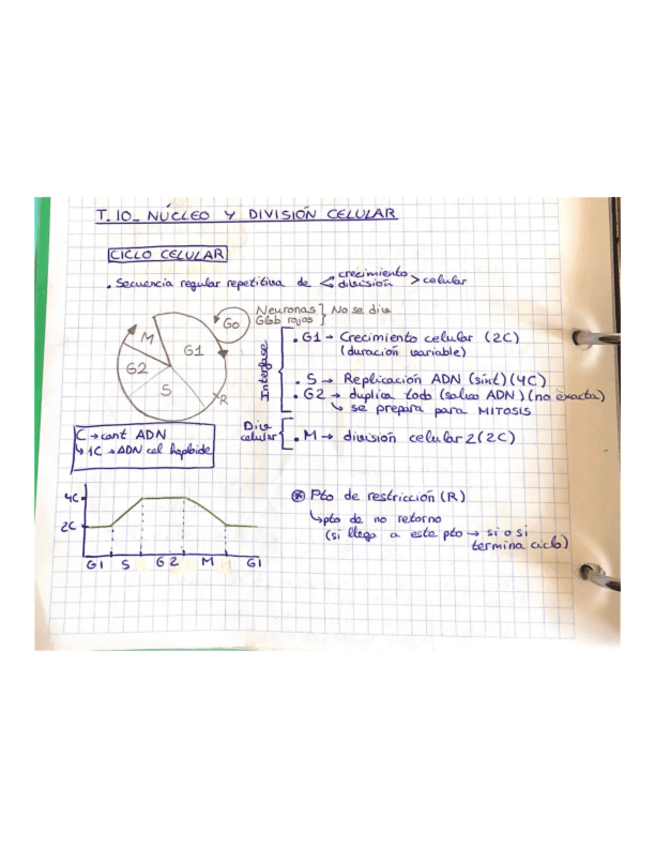 T.10_ NÚCLEO Y DIVISIÓN CELULAR
CICLO CELULAR
. Secuencia regular repetitiva de < crecimiento división > celular
Neuronas
Glob rojos } No se div
G0
M
G1
G2
S
R
Interfase
. G1 → Crecimiento celular (2C)
(duración variable)
. S → Replicación ADN (sínt) (4C)
. G2 → duplica todo (salvo ADN) (no exacta)
↳ se prepara para MITOSIS
Div celular
. M → división celular 2 (2C)
C → cant ADN
↳ 1C → ADN cel haploide
4C
2C
G1 S G2 M G1
⊛ Pto de restricción (R)
↳ pto de no retorno
(si llega a este pto → si o si
termina ciclo)